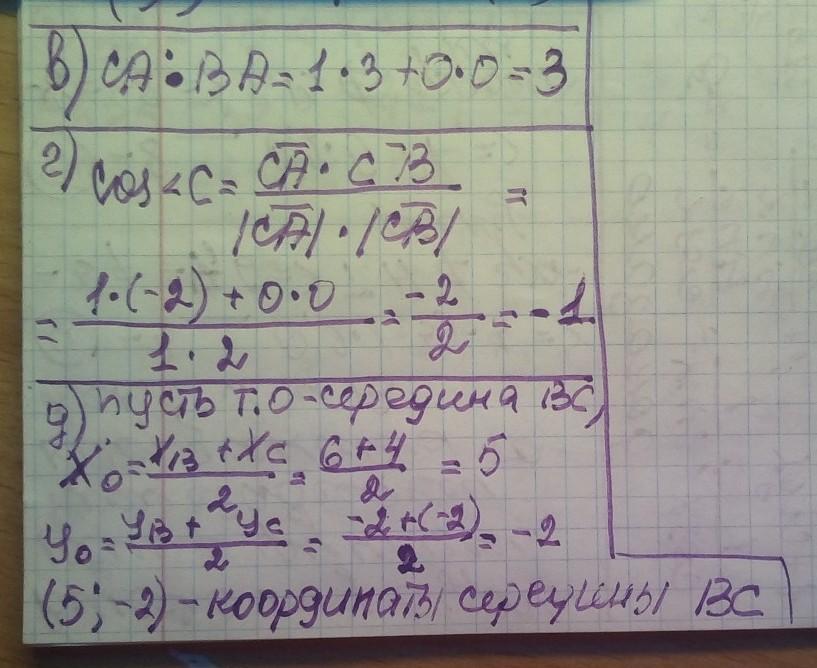 в) CA · BA = 1·3+0·0 = 3
г) cos<C = CA · CB / |CA| · |CB| =
= 1·(-2) + 0·0 / 1·2 = -2/2 = -1
д) пусть т.О-середина BC,
X₀ = XB + XC / 2 = 6+4 / 2 = 5
y₀ = yB + yC / 2 = -2+(-2) / 2 = -2
(5; -2) - координаты середины BC